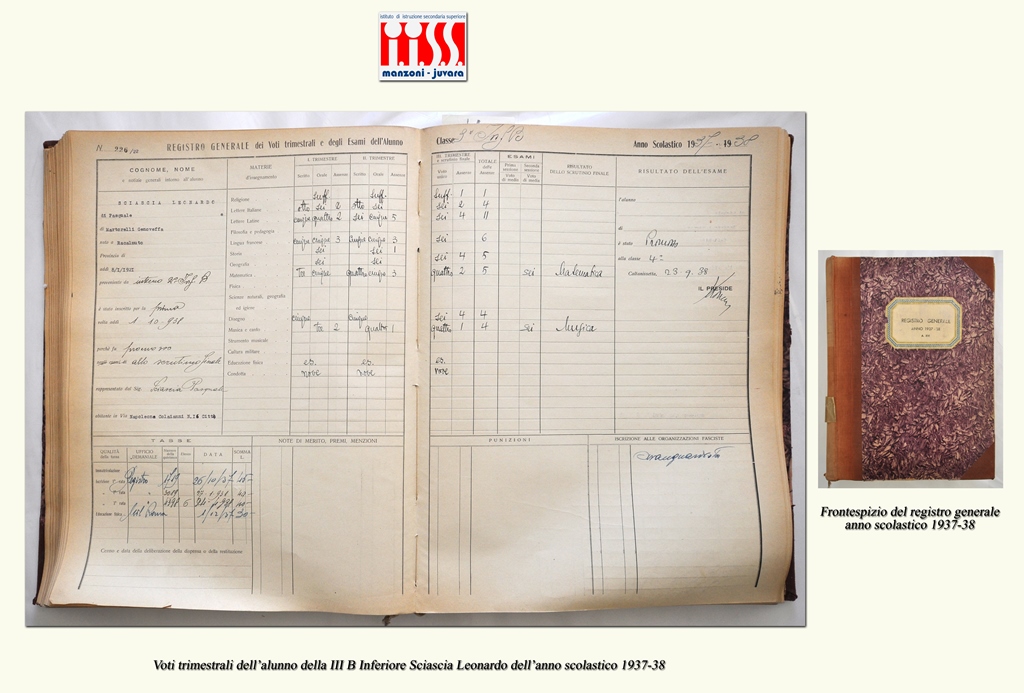 istituto di istruzione secondaria superiore
i.i.s.s.
manzoni - juvara
N 226/10
REGISTRO GENERALE dei Voti trimestrali e degli Esami dell'Alunno
Classe 3ª Inf B
Anno Scolastico 1937 - 1938
COGNOME, NOME
e notizie generali intorno all'alunno
MATERIE
d'insegnamento
I. TRIMESTRE
II. TRIMESTRE
Scritto Orale Assenze Scritto Orale Assenze
III. TRIMESTRE
e scrutinio finale
Voto unico
Assenze
TOTALE
delle
Assenze
ESAMI
Prima sessione
Voto di media
Seconda sessione
Voto di media
RISULTATO
DELLO SCRUTINIO FINALE
RISULTATO DELL'ESAME
SCIASCIA LEONARDO
di Pasquale
e
di Martorelli Genoveffa
nato a Racalmuto
Provincia di
addì 8/1/1921
proveniente da interno 2ª Inf B
è stato iscritto per la prima
volta addì 1 10 931
perchè fu promosso
negli esami di allo scrutinio finale
rappresentato dal Sig. Sciascia Pasquale
abitante in Via Napoleone Colajanni N.16 Città
Religione suff. suff. suff. 1 1
Lettere Italiane otto sei 2 otto sei sei 2 4
Lettere Latine cinque quattro 2 sei cinque 5 sei 4 11
Filosofia e pedagogia
Lingua Straniera cinque cinque 3 cinque cinque 3 sei 6
Storia sei sei 1
Geografia sei sei sei 4 5
Matematica tre cinque quattro cinque 3 quattro 2 5 sei Matematica
Fisica
Scienze naturali, geografia
ed igiene
Disegno cinque cinque sei 4 4
Musica e canto tre 2 quattro 1 quattro 1 4 sei Musica
Strumento musicale
Cultura militare
Educazione fisica es. es. es.
Condotta nove nove nove
l'alunno
di
è stato Promosso
alla classe 4ª
Caltanissetta, 23.9.38
IL PRESIDE
TASSE
NOTE DI MERITO, PREMI, MENZIONI
PUNIZIONI
ISCRIZIONE ALLE ORGANIZZAZIONI FASCISTE
QUALITÀ
della Tassa
UFFICIO
DEMANIALE
DATA
SOMMA
L.
Immatricolazione
Iscrizione 1ª rata Registro
2ª rata
3ª rata
26/10/37
1/12/37
avanguardista
Cenno e data della deliberazione della dispensa e della restituzione
REGISTRO GENERALE
ANNO 1937-38
Frontespizio del registro generale
anno scolastico 1937-38
Voti trimestrali dell'alunno della III B Inferiore Sciascia Leonardo dell'anno scolastico 1937-38